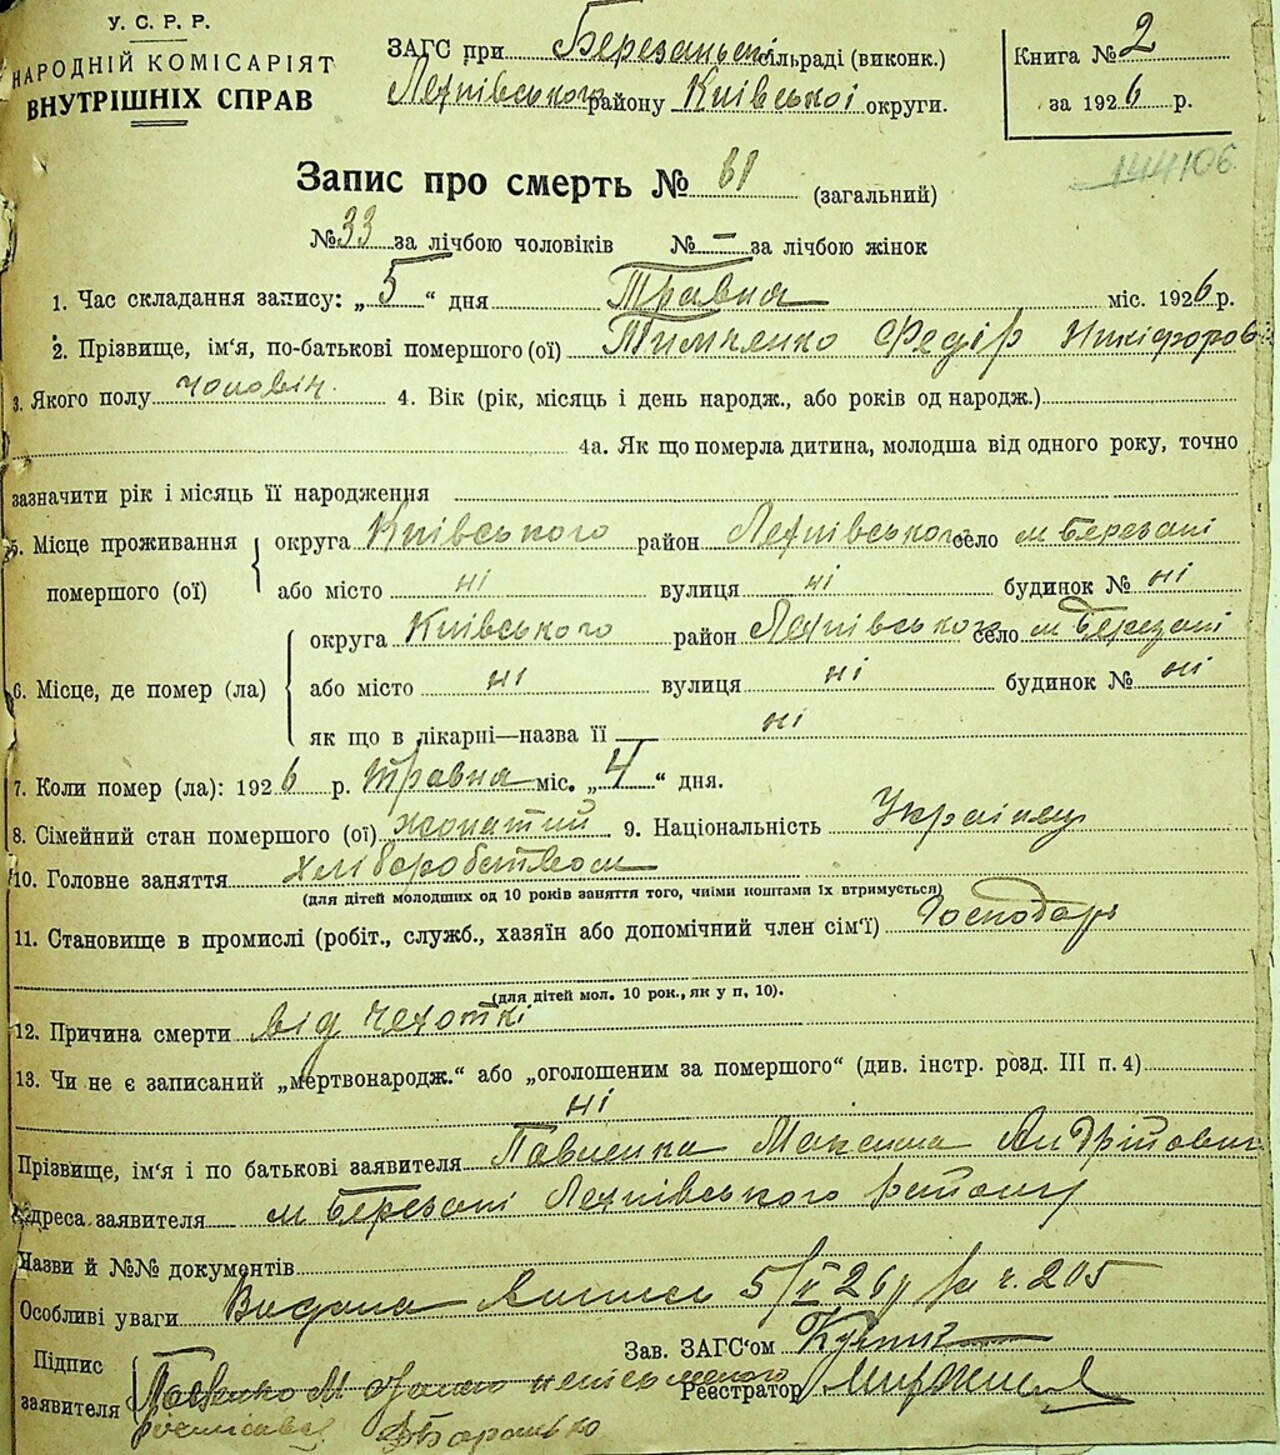 У. С. Р. Р.
НАРОДНІЙ КОМІСАРІЯТ
ВНУТРІШНІХ СПРАВ
ЗАГС при Березанські сільраді (виконк.)
району Київської округи.
Книга № 2
за 1926 р.
144106
Запис про смерть № 61 (загальний)
№ 33 за лічбою чоловіків № — за лічбою жінок
1. Час складання запису: „5“ дня Травня міс. 1926 р.
2. Прізвище, ім'я, по-батькові помершого (ої) Тимченко Федір Никіфоров
3. Якого полу чоловік. 4. Вік (рік, місяць і день народж., або років од народж.)
4а. Як що померла дитина, молодша від одного року, точно
зазначити рік і місяць її народження
5. Місце проживання помершого (ої) округа Київського район село м Березані
або місто ні вулиця ні будинок № ні
6. Місце, де помер (ла) округа Київського район село м Березані
або місто ні вулиця ні будинок № ні
як що в лікарні—назва її ні
7. Коли помер (ла): 1926 р. Травня міс. „4“ дня.
8. Сімейний стан помершого (ої) жонатий 9. Національність Українец
10. Головне заняття хліборобством
(для дітей молодших од 10 років заняття того, чиїми коштами їх втримується)
11. Становище в промислі (робіт., служб., хазяїн або допомічний член сім'ї) Господарь
(для дітей мол. 10 рок., як у п. 10).
12. Причина смерти від чехоткі
13. Чи не є записаний „мертвонародж.“ або „оголошеним за помершого“ (див. інстр. розд. III п. 4)
ні
Прізвище, ім'я і по батькові заявителя Павленка Максима Андрійович
Адреса заявителя м Березані району
Назви й №№ документів
Особливі уваги Видана Випись 5/V 26 р за ч. 205
Зав. ЗАГС'ом
Підпис заявителя Павленко М неписьменого
Реєстратор
росписався